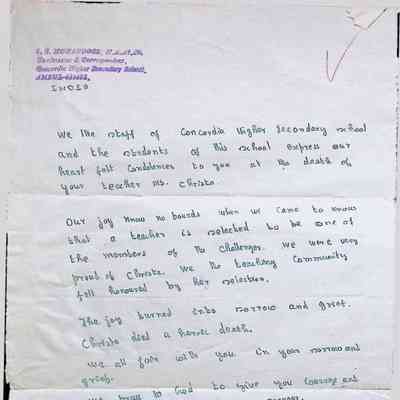 Concordia Higher Secondary School,
AMBUR-635802,
INDIA
We the staff of Concordia Higher Secondary school
and the students of this school express our
heart felt condolences to you at the death of
your teacher Ms. Christa.
Our joy know no bounds when we came to know
that a teacher is selected to be one of
the members of the challenger. We were very
proud of Christa. We the teaching Community
felt honoured by her selection.
The joy burned into sorrow and grief.
Christa died a heroic death.
We all join with you in your sorrow and
grief.
We pray to God to give you courage and